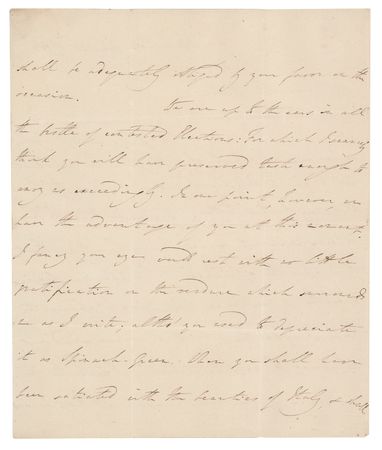 shall be adequately staged by your favor on the
occasion. We are up to the ears in all
the bustle of contested Elections: For which I scarcely
think you will have preserved taste enough to
envy us exceedingly. In one point, however, we
have the advantage of you at this moment.
I fancy your eyes would rest with no little
gratification on the verdure which surrounds
me as I write; altho' you used to depreciate
it as Spinach-green. When you shall have
been satiated with the beauties of Italy, & shall